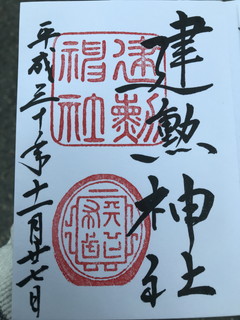 建勲神社
建勲神社
平成三十年十一月廿七日